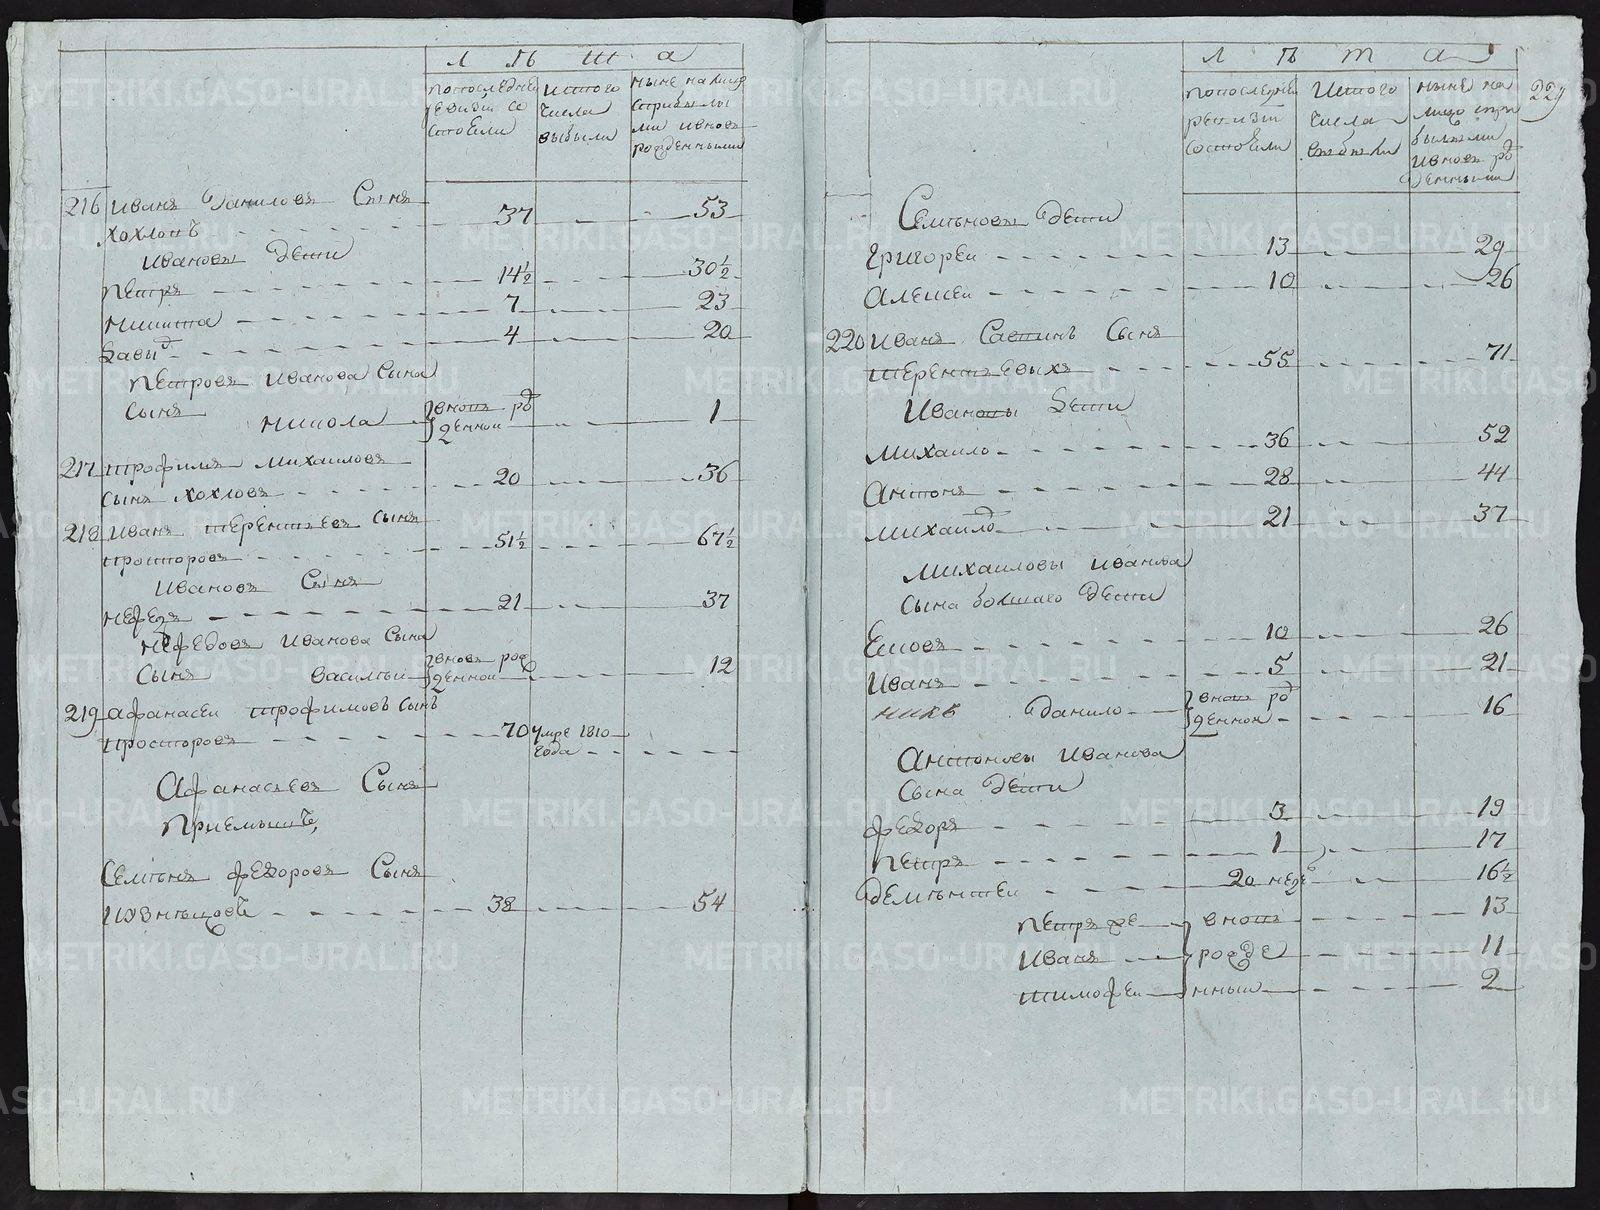 Л ѣ т а
попоследней ревизи со стояли
истого числа выбыли
ныне на лице сприбылы ми ивновь рожденными
216 Иванъ Даниловъ Сынъ
Хохловъ 37 53
Ивановы Дети
Петръ 14½ 30½
Никита 7 23
Давыд 4 20
Петровъ Иванова Сына
Сынъ Никола вновь рожденной 1
217 Трофимъ Михаиловъ
Сынъ Хохловъ 20 36
218 Иванъ Терентьевъ Сынъ
Просторовъ 51½ 67½
Ивановъ Сынъ
Нефедъ 21 37
Нефедовъ Иванова Сына
Сынъ Василеи вновь рожденной 12
219 Афанасеи Трофимовъ Сынъ
Просторовъ 70 умре 1810 года
Афанасьевъ Сынъ
Приемышъ,
Семѣнъ Федоровъ Сынъ
38 54
229
Л ѣ т а
попоследней ревизи состояли
Истого числа выбыли
ныне на лицо при былыми ивновь рожденными
Семѣновы Дети
Григореи 13 29
Алексеи 10 26
220 Иванъ Савинъ Сынъ
Терентьевыхъ 55 71
Ивановы Дети
Михаило 36 52
Антонъ 28 44
Михаило 21 37
Михаиловы Иванова
Сына болшаго Дети
10 26
Иванъ 5 21
Данило вновь рожденной 16
Антоновы Иванова
Сына Дети
Федоръ 3 19
Петръ 1 17
Дементеи 20 неде 16½
Петръ же вновь 13
Иванъ рожде 11
Тимофеи нныи 2
METRIKI.GASO-URAL.RU